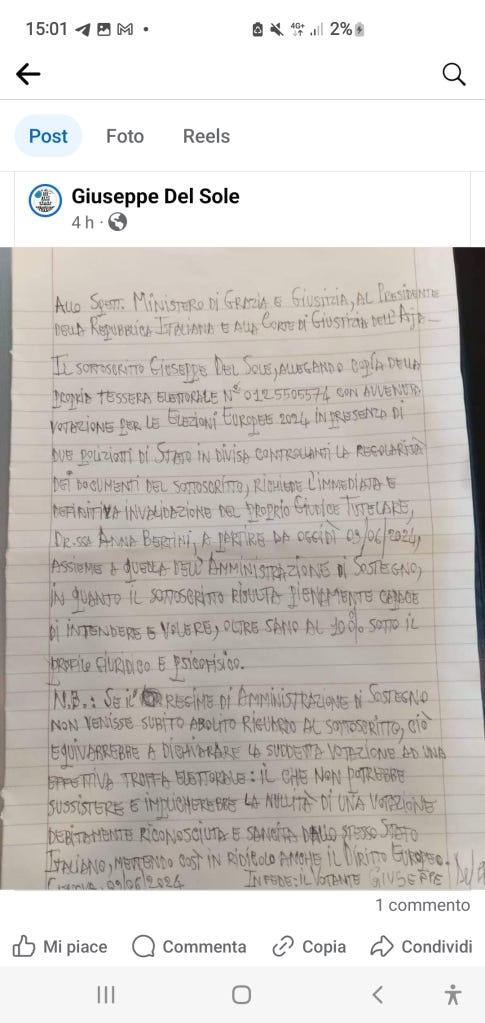 15:01
4G+
2%
Post Foto Reels
Giuseppe Del Sole
4 h ·
ALLO SPETT. MINISTERO DI GRAZIA E GIUSTIZIA, AL PRESIDENTE
DELLA REPUBBLICA ITALIANA E ALLA CORTE DI GIUSTIZIA DELL'AJA-
IL SOTTOSCRITTO GIUSEPPE DEL SOLE, ALLEGANDO COPIA DELLA
PROPRIA TESSERA ELETTORALE N° 0125505574 CON AVVENUTA
VOTAZIONE PER LE ELEZIONI EUROPEE 2024 IN PRESENZA DI
DUE POLIZIOTTI DI STATO IN DIVISA CONTROLLANTI LA REGOLARITÀ
DEI DOCUMENTI DEL SOTTOSCRITTO, RICHIEDE L'IMMEDIATA E
DEFINITIVA INVALIDAZIONE DEL PROPRIO GIUDICE TUTELARE,
DR.SSA ANNA BERTINI, A PARTIRE DA OGGIDÌ 09/06/2024,
ASSIEME A QUELLA DELL'AMMINISTRAZIONE DI SOSTEGNO,
IN QUANTO IL SOTTOSCRITTO RISULTA PIENAMENTE CAPACE
DI INTENDERE E VOLERE, OLTRE SANO AL 100% SOTTO IL
PROFILO GIURIDICO E PSICOFISICO.
N.B.: SE IL REGIME DI AMMINISTRAZIONE DI SOSTEGNO
NON VENISSE SUBITO ABOLITO RIGUARDO AL SOTTOSCRITTO, CIÒ
EQUIVARREBBE A DICHIARARE LA SUDDETTA VOTAZIONE AD UNA
EFFETTIVA TRUFFA ELETTORALE: IL CHE NON POTREBBE
SUSSISTERE E IMPLICHEREBBE LA NULLITÀ DI UNA VOTAZIONE
DEBITAMENTE RICONOSCIUTA E SANCITA DALLO STESSO STATO
ITALIANO, METTENDO COSÌ IN RIDICOLO ANCHE IL DIRITTO EUROPEO.
09/06/2024 IN FEDE: IL VOTANTE GIUSEPPE
1 commento
Mi piace Commenta Copia Condividi